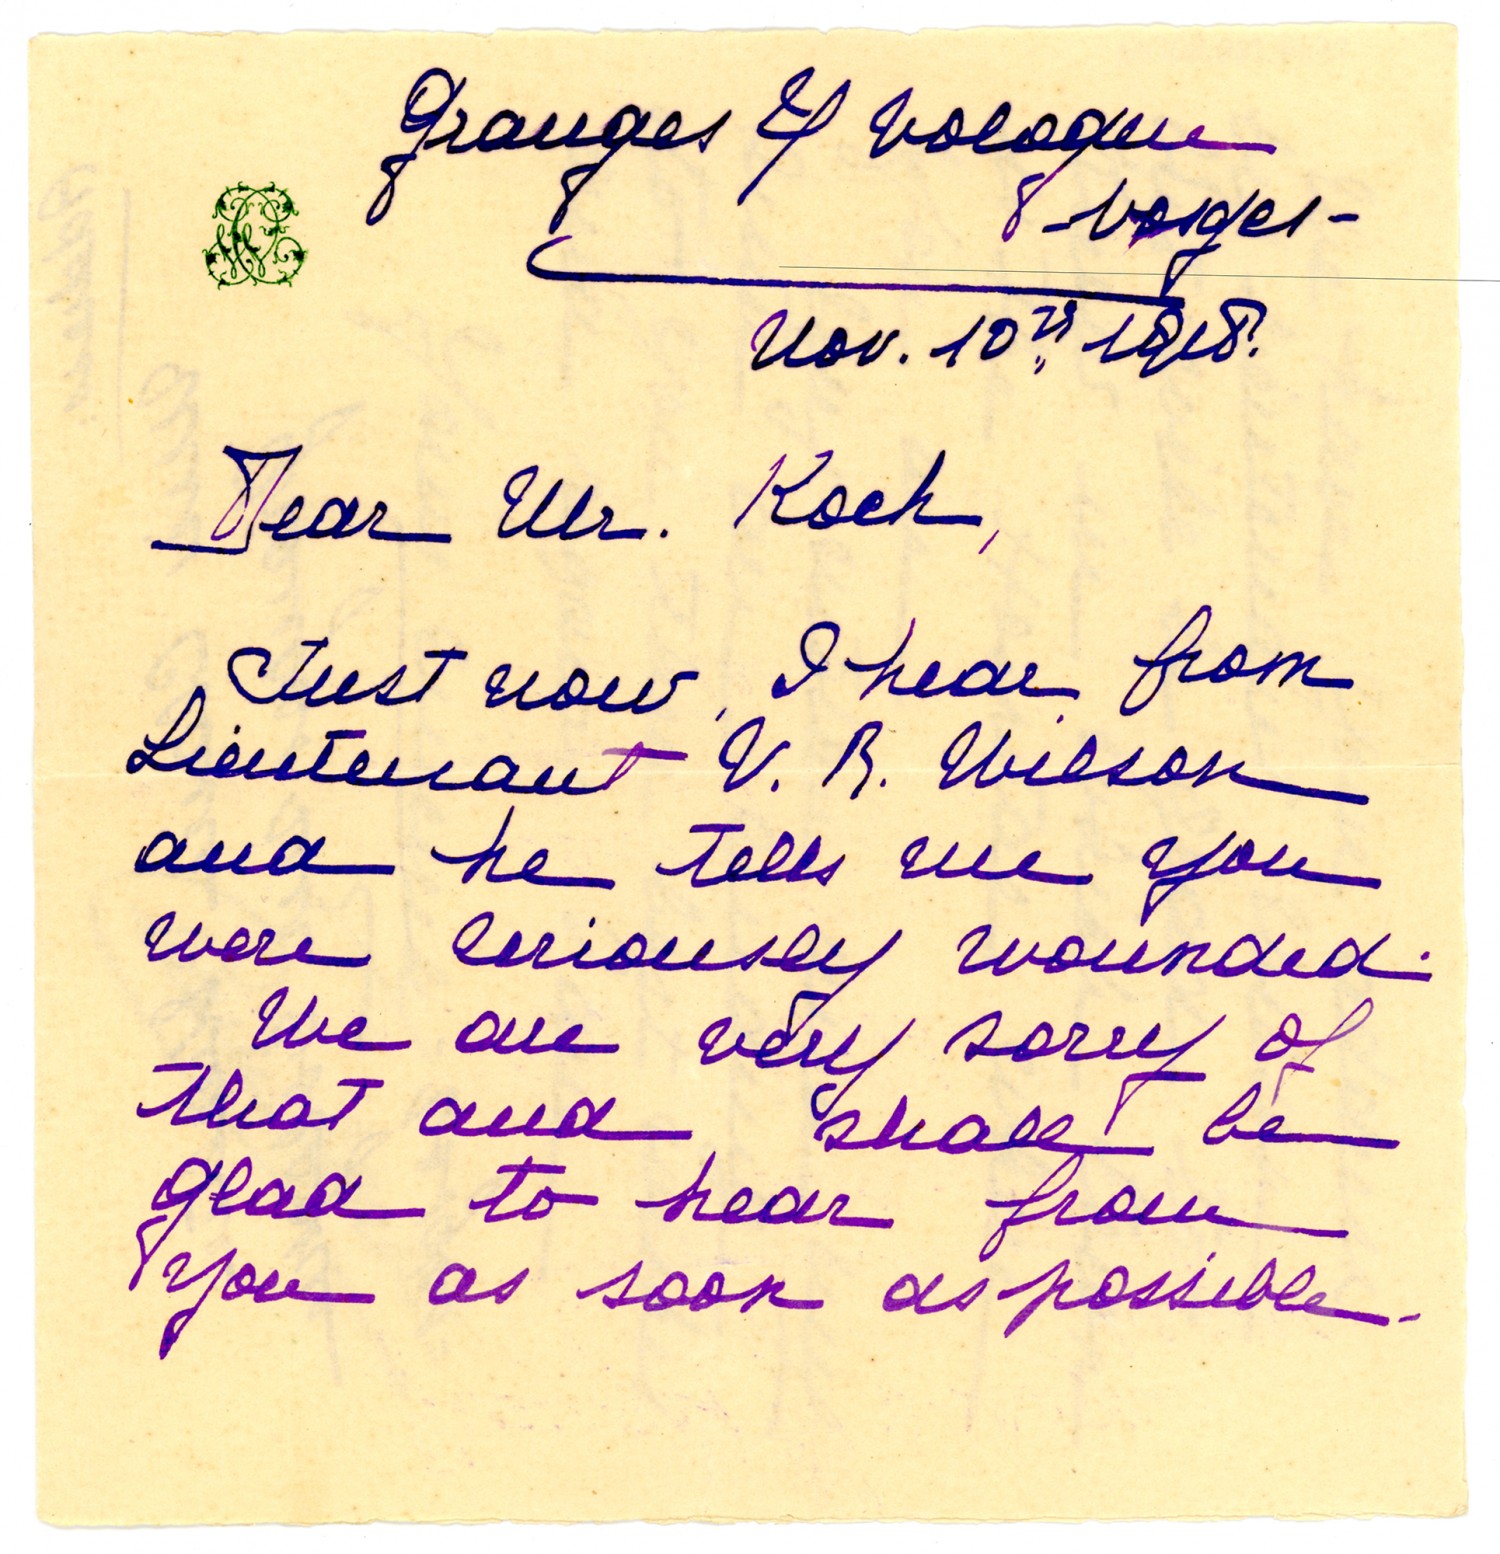 Granges s/ Vologne
- Vosges -
Nov. 10th 1918.
Dear Mr. Koch,
Just now, I hear from
Lieutenant V. R. Wilson
and he tells me you
were seriously wounded.
We are very sorry of
that and shall be
glad to hear from
you as soon as possible.